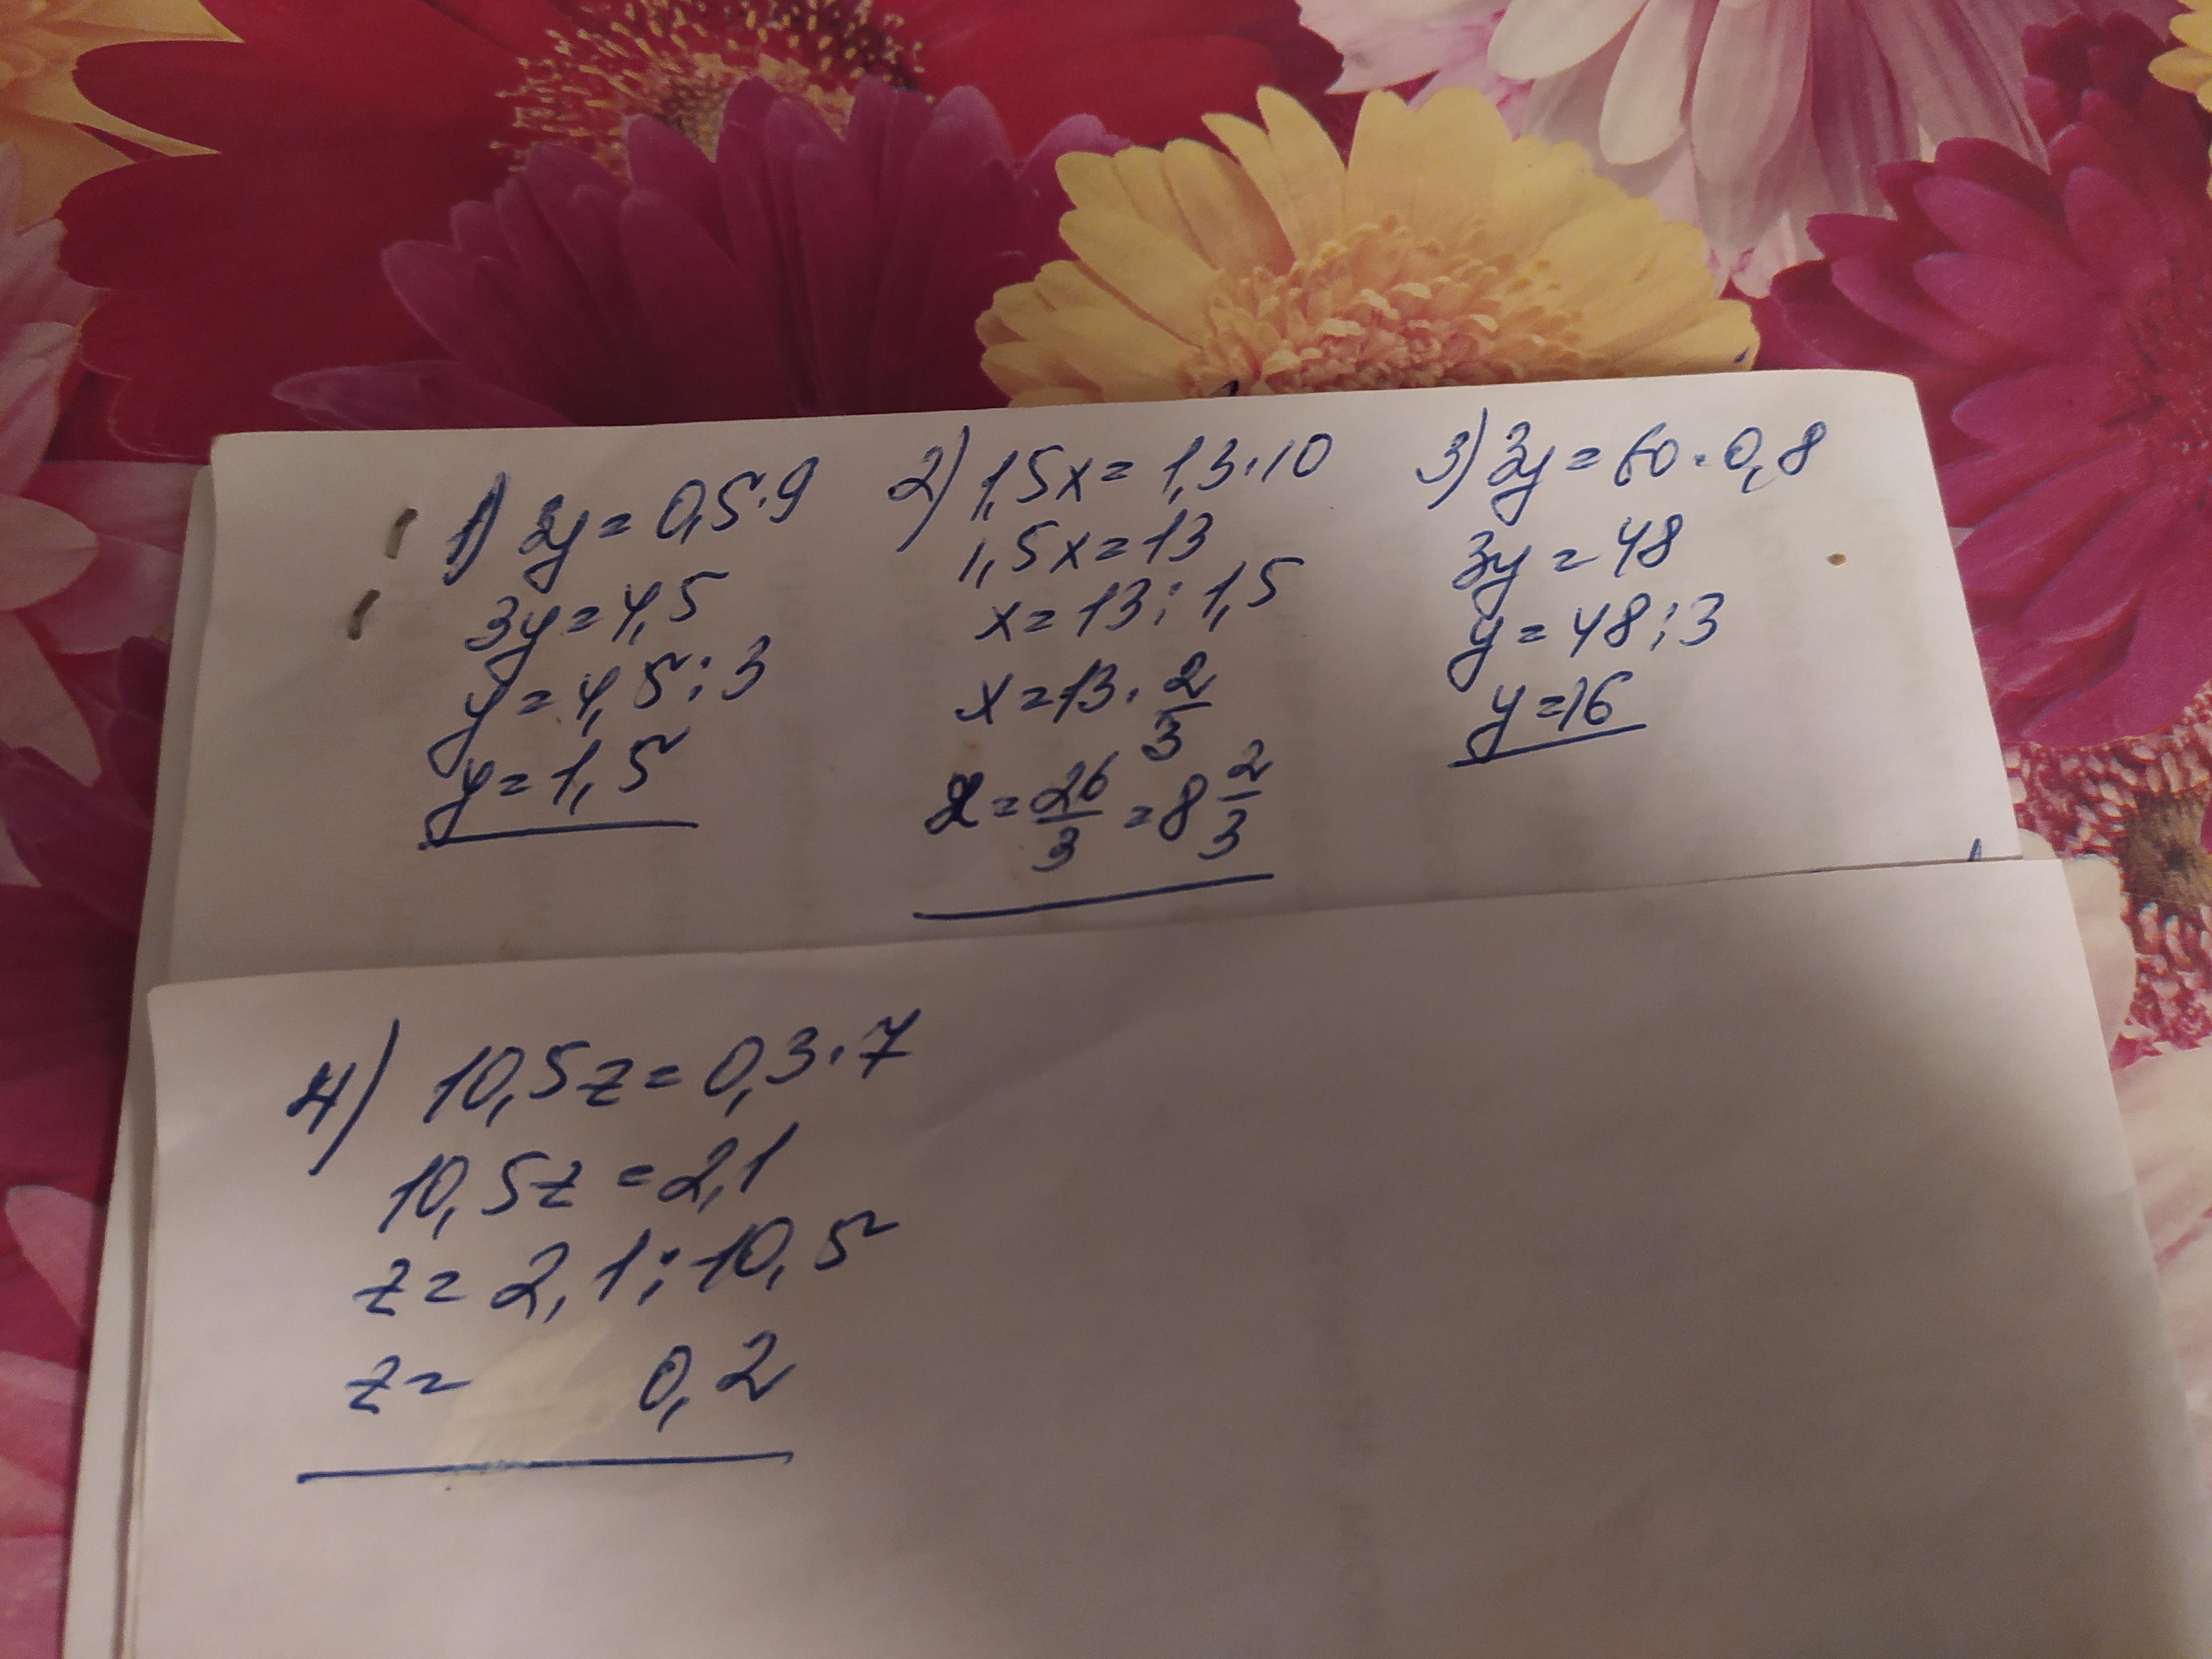 1) 3y = 0,5·9
3y = 4,5
y = 4,5 : 3
y = 1,5
2) 1,5x = 1,3·10
1,5x = 13
x = 13 : 1,5
x = 13 · 2/3
x = 26/3 = 8 2/3
3) 3y = 60·0,8
3y = 48
y = 48 : 3
y = 16
4) 10,5z = 0,3·7
10,5z = 2,1
z = 2,1 : 10,5
z = 0,2